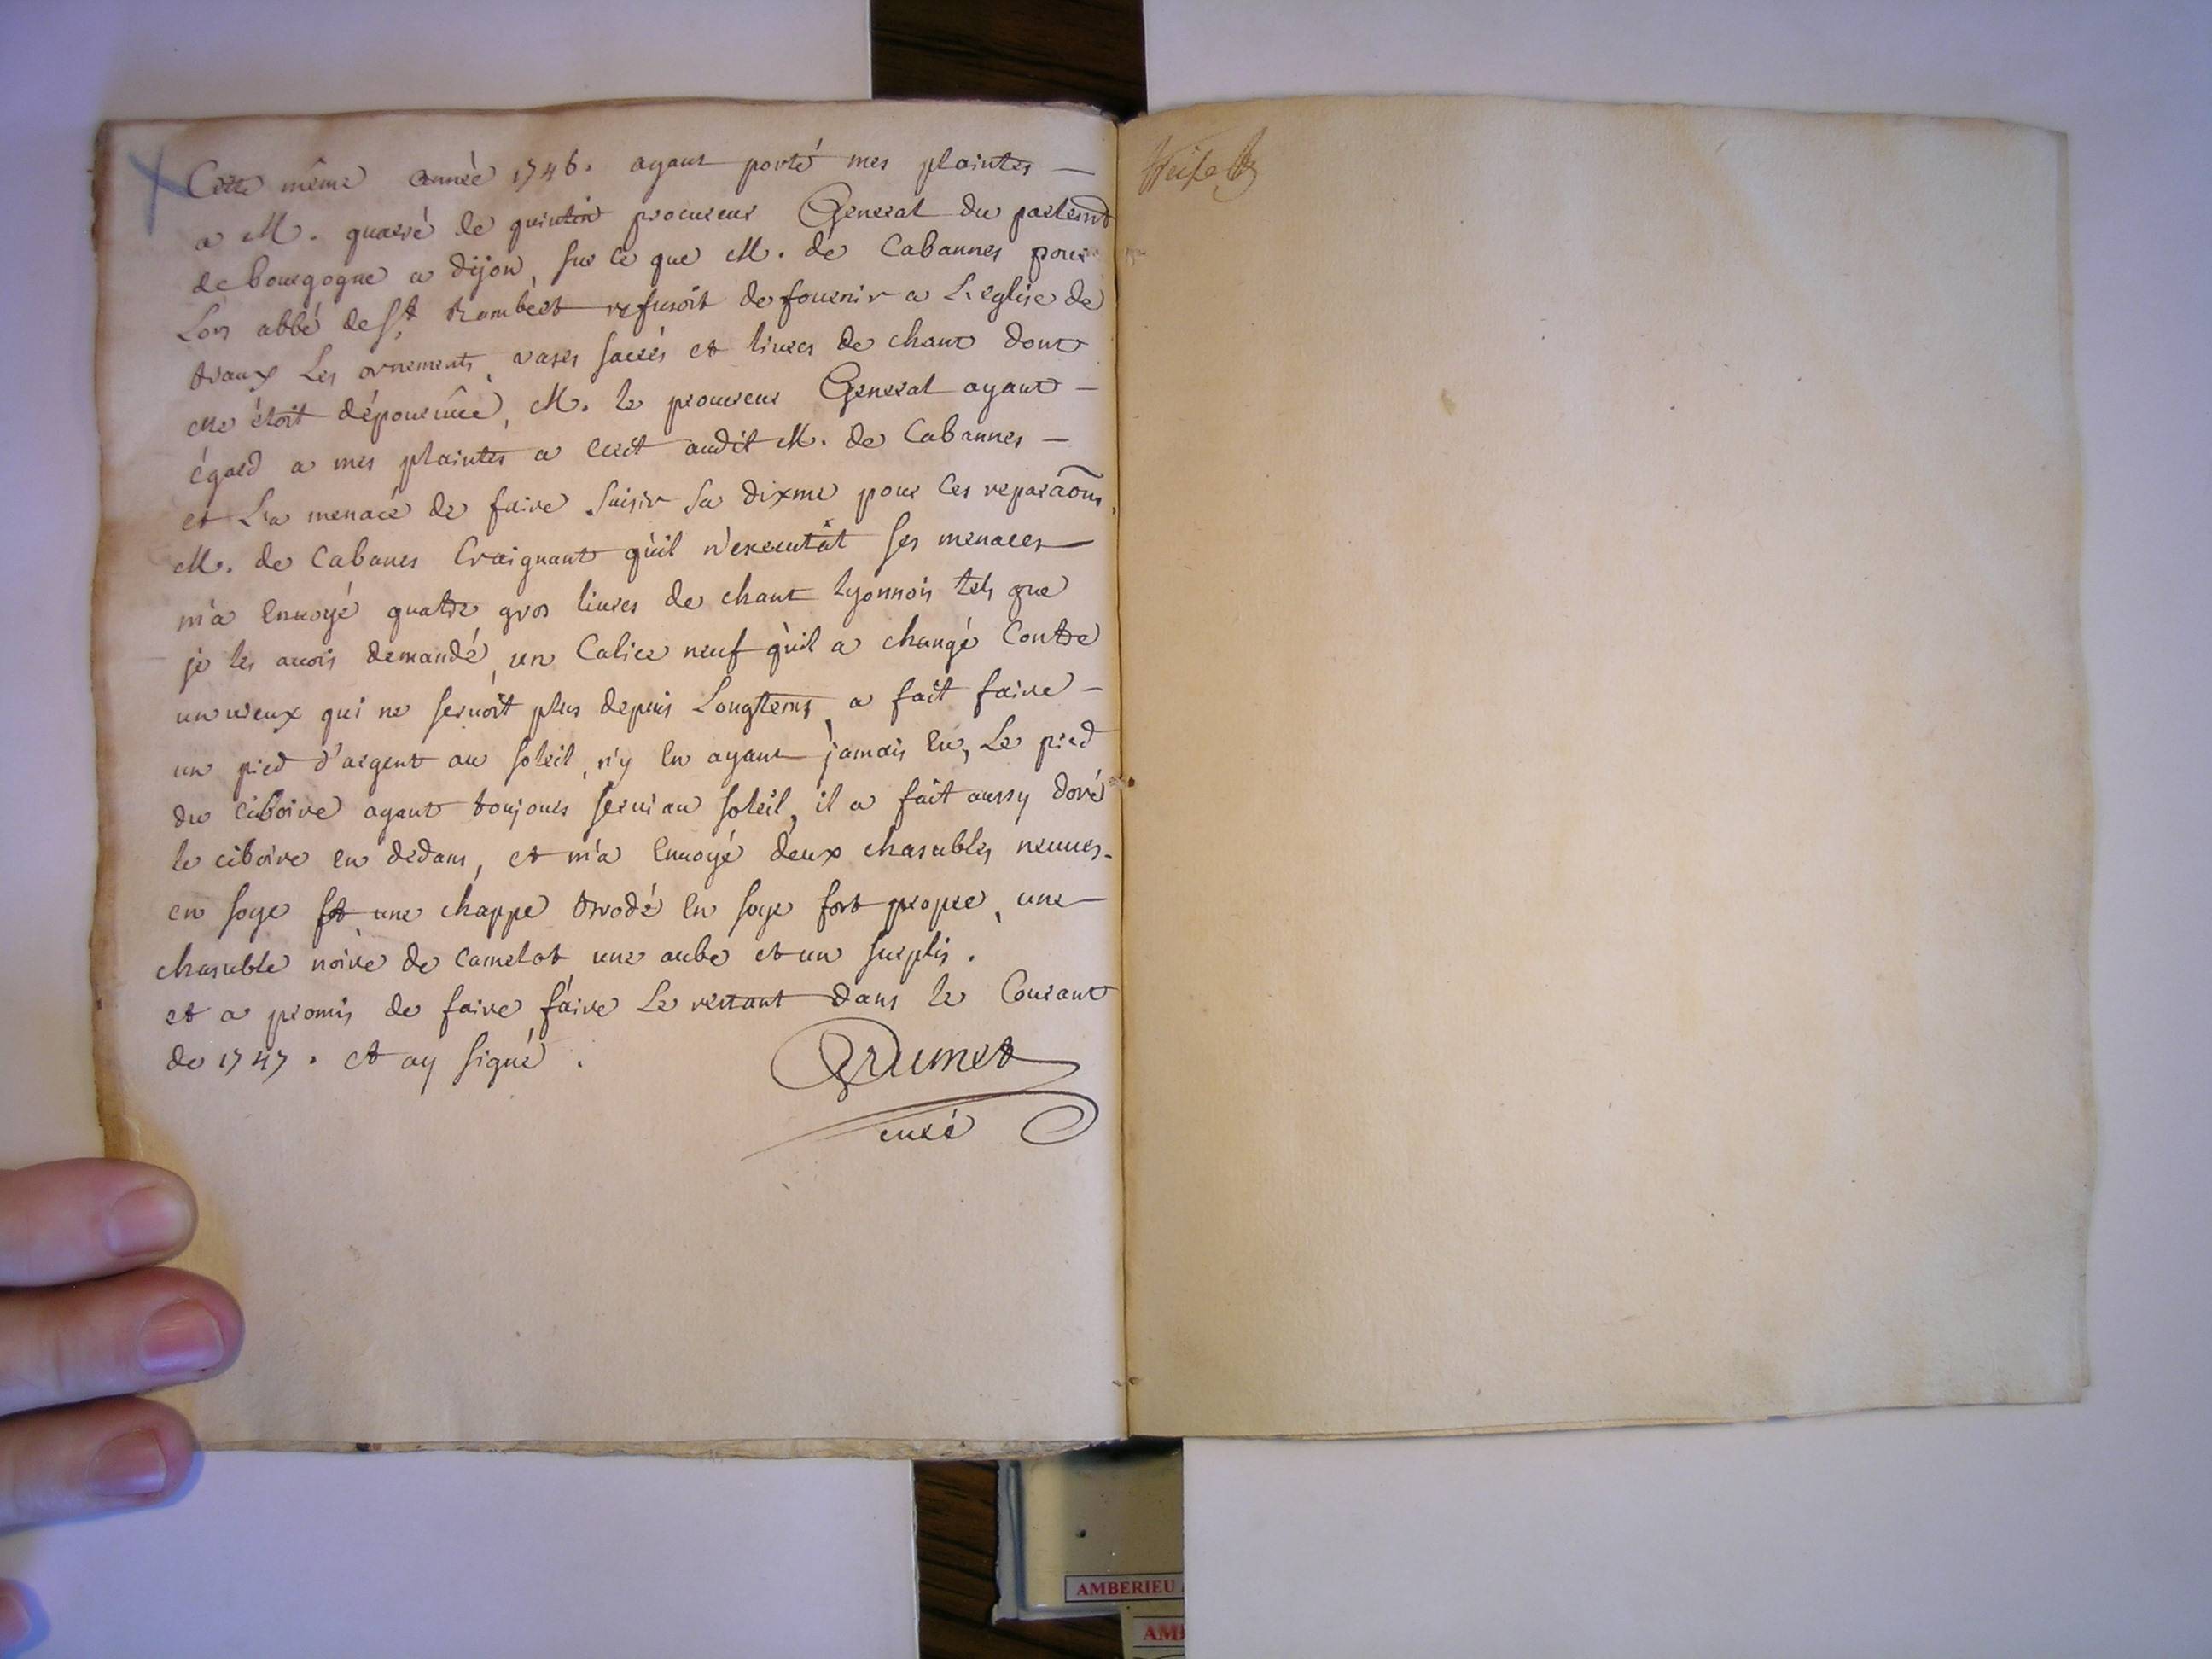 Cette même année 1746. ayant porté mes plaintes —
a M. quarré de quintin procureur General du parlemt
de bourgogne a dijon, sur ce que M. de Cabannes pour
Lors abbé de St Rambert refusoit de fournir a L'eglise de
Les ornements, vases sacrés et livres de chant dont
elle étoit dépourvüe, M. le procureur General ayant —
égard a mes plaintes a ecrit audit M. de Cabannes —
et L'a menacé de faire saisir sa dixme pour ces reparaons,
M. de Cabanes Craignant qu'il n'executât ses menaces
m'a Envoyé quatre gros livres de chant lyonnois tels que
je les avois demandé, un Calice neuf qu'il a changé Contre
un vieux qui ne servoit plus depuis Longtems, a fait faire —
un pied d'argent au soleil, n'y En ayant jamais Eu, Le pied
du Ciboire ayant toujours servi au soleil, il a fait aussy doré
le ciboire En dedans, et m'a Envoyé deux chasubles neuves
en soye et une chappe brodé En soye fort propre, une —
chasuble noire de Camelot une aube et un surplis.
et a promis de faire faire Le restant dans le Courant
de 1747. et ay signé.
Grumet
curé
AMBERIEU
AMB